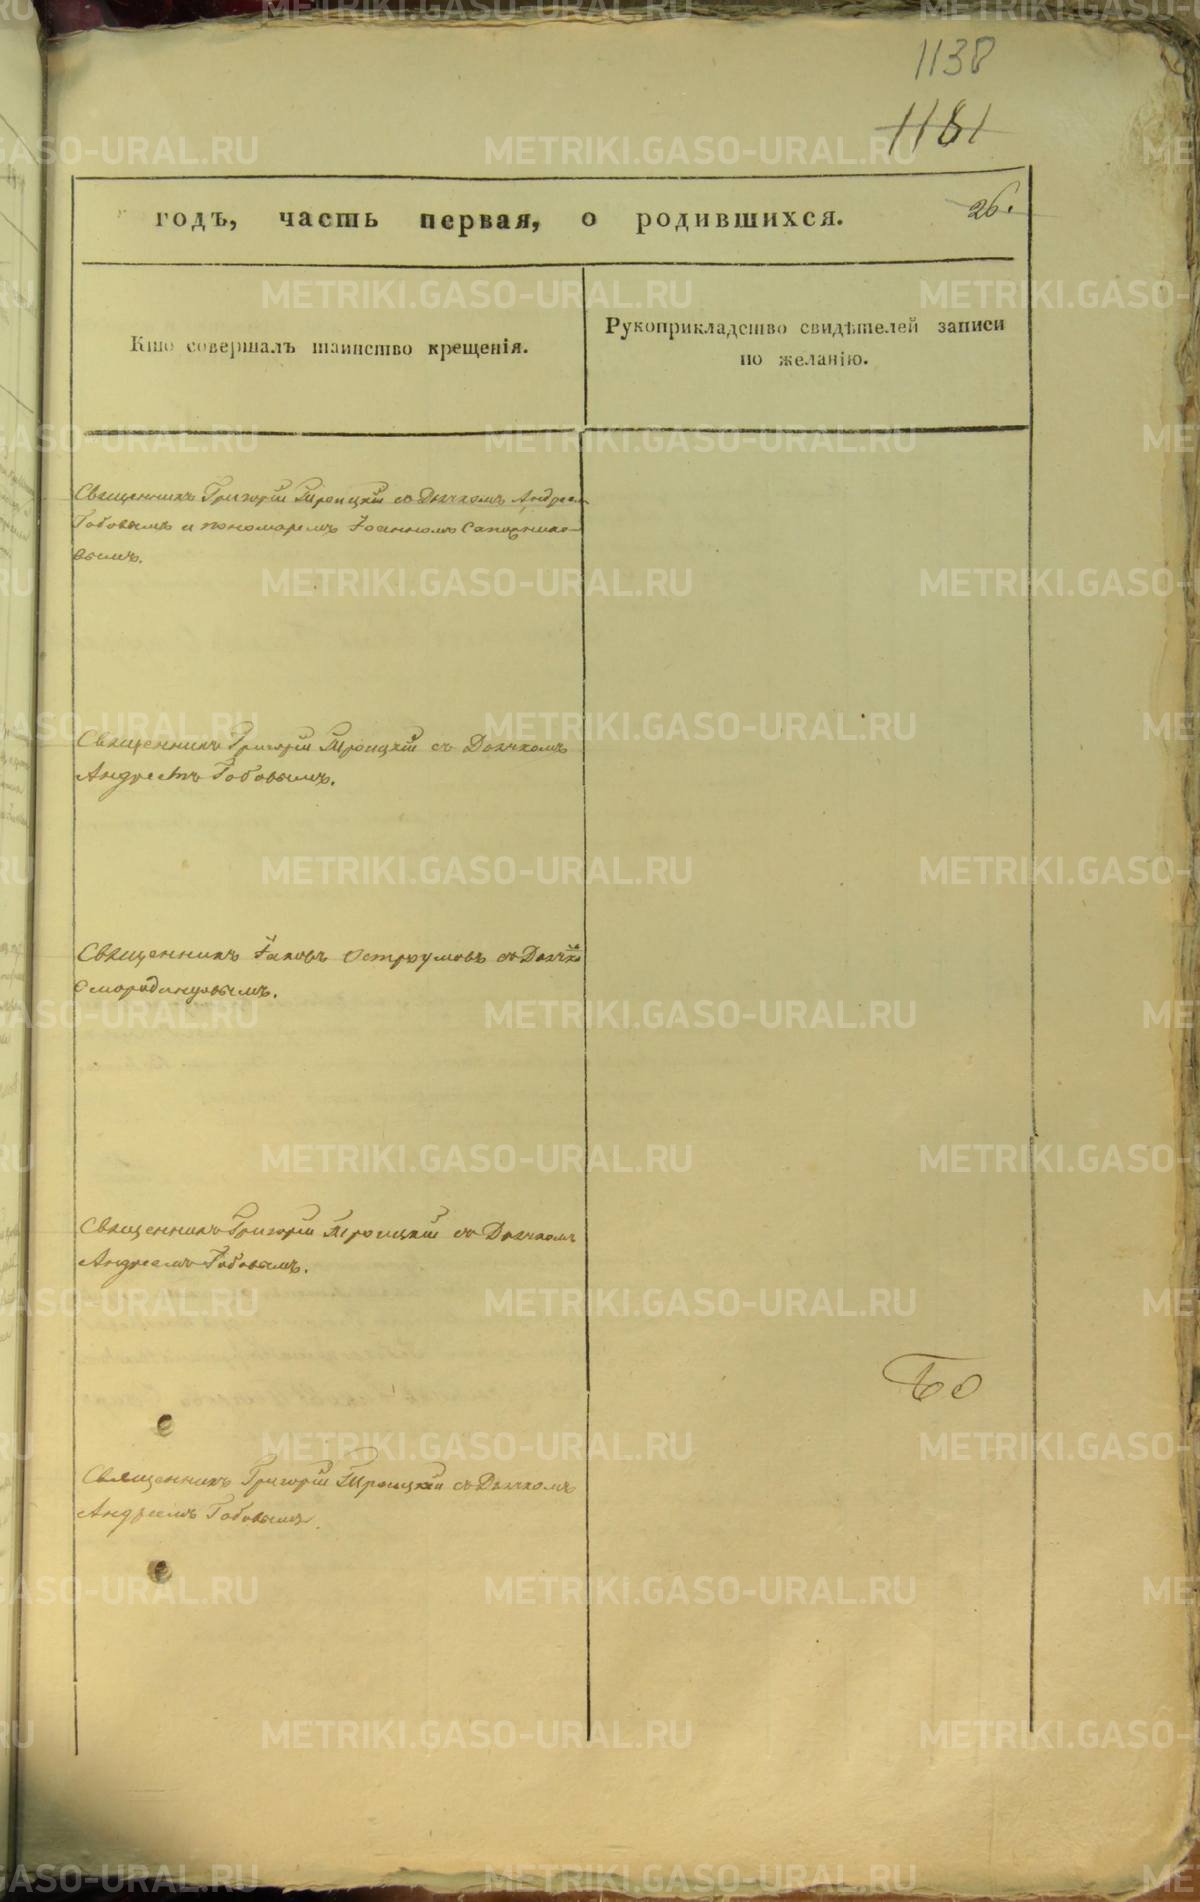 1138
1181
годъ, часть первая, о родившихся.
26.
Кто совершалъ таинство крещенія.
Рукоприкладство свидѣтелей записи
по желанію.
Священникъ Григорій Троицкій съ Дьячкомъ Андреем
Бобовымъ и пономаремъ Іоанномъ
вымъ.
Священникъ Григорій Троицкій съ Дьячкомъ
Андреемъ Бобовымъ.
Священникъ Іаковъ Остроумовъ съ Дьячко
Смородинцовымъ.
Священникъ Григорій Троицкій съ Дьячкомъ
Андреемъ Бобовымъ.
Священникъ Григорій Троицкій съ Дьячкомъ
Андреемъ Бобовымъ
METRIKI.GASO-URAL.RU